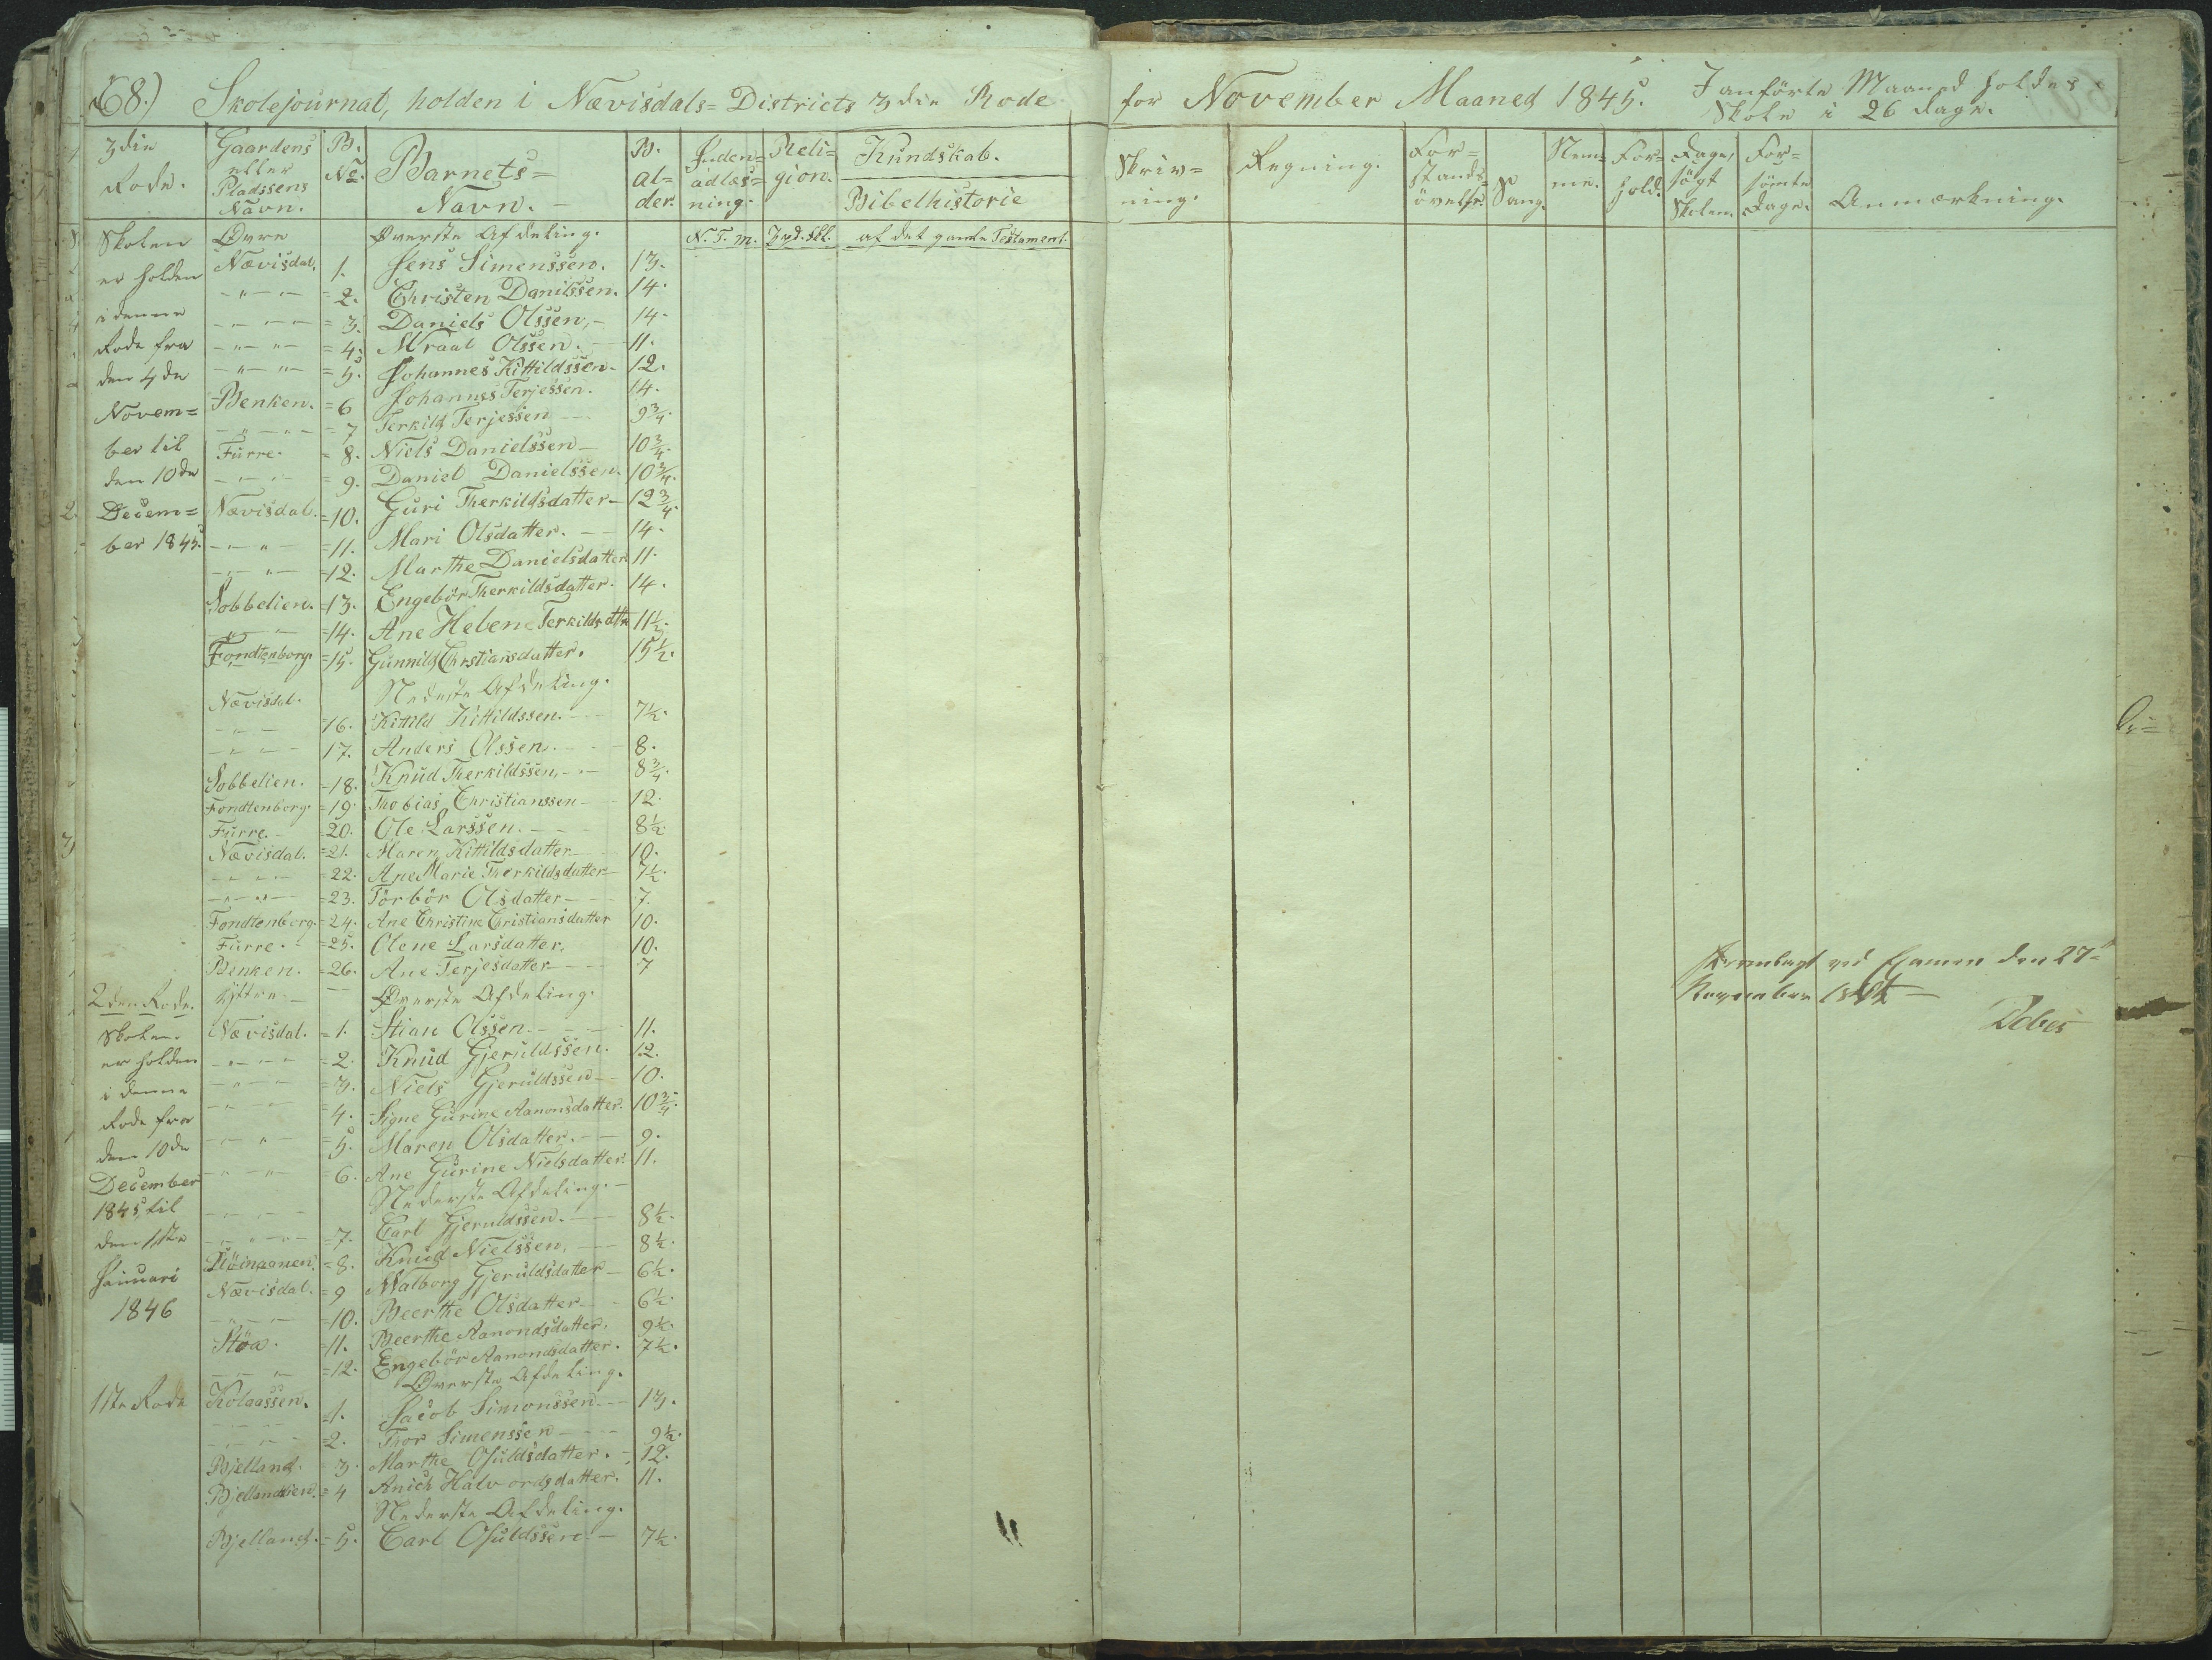 68.) Skolejournal, holden i Nævisdals=Districts 3die Rode for November Maaned 1845. I anførte Maaned holdes
Skole i 26 Dage.
3die Rode.
Gaardens eller Pladssens Navn.
B. No.
Barnets= Navn.
B. al= der.
Inden= adlæs= ning.
Reli= gion.
Kundskab.
Bibelhistorie
Skriv= ning.
Regning.
For= stands= øvelse.
Sang.
Nem= me.
For= hold.
Dage, søgt Skolen.
For= sømte Dage.
Anmærkning.
Øverste Afdeling. N. T. m. af det gamle Testament.
Skolen
er holden
i denne
Rode fra
den 4de
Novem=
ber til
den 10de
Decem=
ber 1845.
Øvre
Nævisdal. 1. Jens Simenssen. 13.
-"- =2. Christen Danilssen. 14.
-"- =3. Daniels Olssen, 14.
-"- =4. Wraal Olssen. 11.
-"- =5. Johannes Kittildssen. 12.
Benken. =6 Johannes Terjessen. 14.
-"- =7 Terkild Terjessen 9 3/4.
Furre. =8. Niels Danielssen 10 3/4.
-"- =9. Daniel Danielssen. 10 3/4.
Nævisdal. =10. Guri Therkildsdatter 12 3/4.
-"- =11. Mari Olsdatter. 14.
-"- =12. Marthe Danielsdatter 11.
Sobbelien. =13. Engebör Therkildsdatter. 14.
-"- =14. Ane Helene Terkildsdttr 11 1/2.
Fondtenborg. =15. Gunnild Chrstiansdatter. 15 1/2.
Nederste Afdeling.
Nævisdal.
-"- 16. Kittild Kittildssen. 7 1/2.
-"- 17. Anders Olssen. 8.
Sobbelien. =18. Knud Therkildssen, 8 3/4.
Fondtenborg. =19. Thobias Christianssen 12.
Furre. =20. Ole Larssen. 8 1/2.
Nævisdal. =21. Maren Kittildsdatter 10.
-"- =22. Ane Marie Therkildsdatter 7 1/2.
-"- =23. Törbör Olsdatter 7.
Fondtenborg. =24. Ane Christine Cristiansdatter 10.
Furre. =25. Olene Larsdatter. 10.
Benken. =26. Ane Terjesdatter 7
2den Rode.
Skolen
er holden
i denne
Rode fra
den 10de
December
1845 til
den 1ste
Januari
1846
Yttre Øverste Afdeling.
Nævisdal. =1. Stian Olssen. 11.
-"- =2. Knud Gjeruldssen. 12.
-"- =3. Niels Gjeruldssen 10.
-"- =4. Signe Gurine Aanonsdatter. 10 3/4.
-"- =5. Maren Olsdatter. 9.
-"- =6. Ane Gurine Nielsdatter. 11.
Nederste Afdeling.
-"- =7. Carl Gjeruldssen. 8 1/2.
=8. Knud Nielssen, 8 1/2.
Nævisdal. =9 Walborg Gjeruldsdatter 6 1/2.
-"- =10. Beerthe Olsdatter 6 1/2.
Stöa. =11. Beerthe Aanondsdatter. 9 1/2.
-"- =12. Engebör Aanondsdatter. 7 1/2.
Øverste Afdeling.
1ste Rode Kolaassen. =1. Jacob Simonssen 13.
-"- =2. Thor Simenssen 9 1/2.
Bjelland. 3. Marthe Osuldsdatter. 12.
Bjellandlien. =4 Anich Halvordsdatter. 11.
Nederste Afdeling.
Bjelland. =5. Carl Osuldssen 7 1/2.
Fremlagt ved Examen den 27
November
Debes